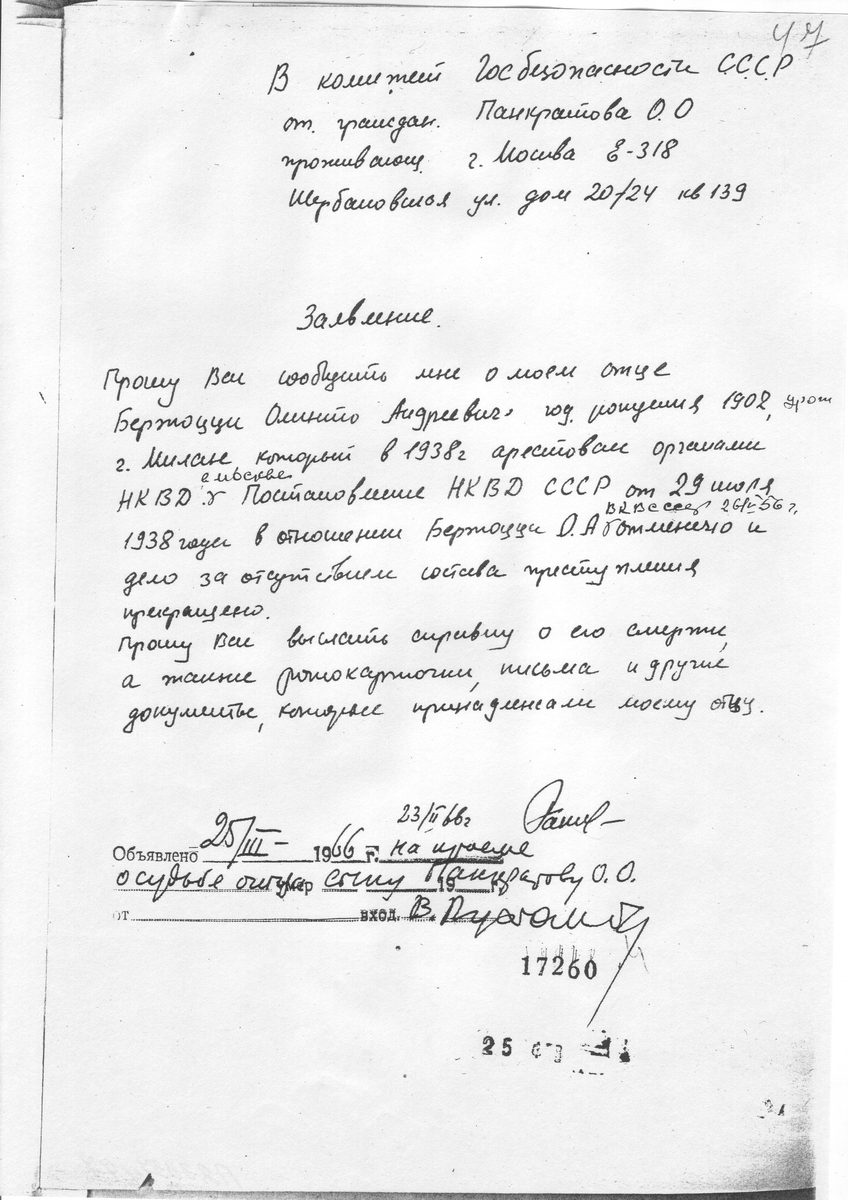 47
В комитет Госбезопасности СССР
от граждан. Панкратова О.О
проживающ. г. Москва Е-318
Щербаковская ул. дом 20/24 кв 139
Заявление.
Прошу Вас сообщить мне о моем отце
Бержоцци Олинто Андреевич год рождения 1902, урож
г. Милан, который в 1938г арестован органами
в Москве
НКВД. Постановление НКВД СССР от 29 июля
ВКВС СССР 26/V-56 г.
1938 года в отношении Бержоцци О.А отменено и
дело за отсутствием состава преступления
прекращено.
Прошу Вас выслать справку о его смерти,
а также фотокарточки, письма и другие
документы, которые принадлежали моему отцу.
23/II 66г
Объявлено 25/III- 1966 г. на приеме
о судьбе отца сыну Панкратову О.О.
от вход. В.
17260
25